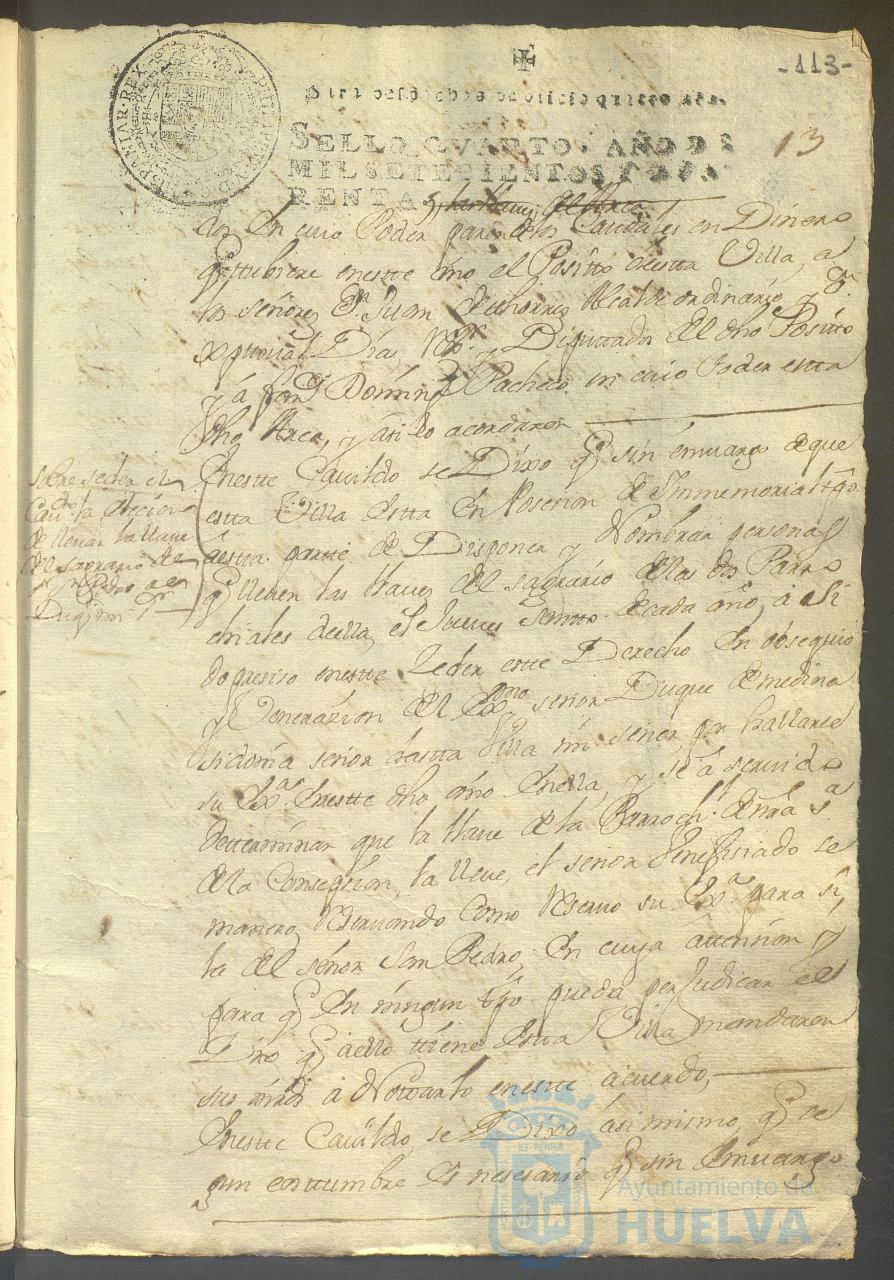 -113-
13
PHILIPPUS V D G HISPANIAR REX
SELLO QVARTO, AÑO DE
MIL SETECIENTOS Y QVA
RENTA
en cuio Poder paran los Caudales en Dinero
q̃ ttubiere enestte año el Positto destta Villa, a
los señores Dn Juan Alcalde ordinario, y
Dias y Diputtado del dho Positto
y a Domingz Pacheco en cuio Poder estta
dho Arca, y asi lo acordaron
Enestte Cavildo se Dixo q̃ sin emvargo de que
estta Villa estta en Posesion de Immemorial tpo
aestta partte de Disponer y Nombrar personas
q̃ lleven las llaves del sagrario de las dos Parro
chiales deella, el Jueves Santto de cada año, a si
do presiso enestte zeder este Derecho en obsequio
y Venerazion del Exmo señor Duque de medina
sidonia señor destta Villa mi señor por hallarse
su Exa. enestte dho año enella, y se a servido
detterminar que la llave de la Parrochl. de nra sa
de la Consepsion, la lleve, el señor Venefisiado se
manero, Reservando como Reservo su Exa. para si,
la del señor San Pedro, en cuya attension y
para q̃ en ningun tpo pueda perjudicar el
Dro q̃ aello ttiene estta Villa mandaron
sus mrds a Nottarlo enestte acuerdo,
Enestte Cavildo, se Dixo asimismo, q̃ se
gun costtumbre es nesesario q̃ sin emvargo
sobre seder el
Cavdo la elecion
de llevar la llave
del sagrario de
sr Sn Pedro a el
Duq̃ mi sr
Ayuntamiento de
HUELVA